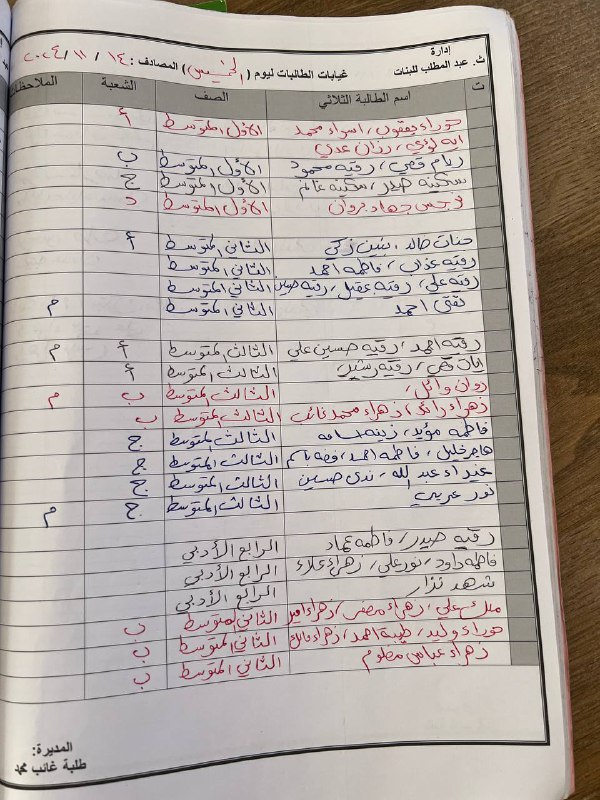 إدارة
ث. عبد المطلب للبنات
غيابات الطالبات ليوم (الخميس) المصادف : ١٤ / ١١ / ٢٠٢٤
ت اسم الطالبة الثلاثي الصف الشعبة الملاحظ
حوراء يعقوب، اسراء محمد الاول المتوسط أ
ايه لؤي، رزان عدي
ريام قصي، رقيه محمود الأول المتوسط ب
سكينه حيدر، سكينه غانم الأول المتوسط ج
نرجس جهاد مروان الاول المتوسط د
جنات خالد، بنين زكي الثاني المتوسط أ
رقيه عدنان، فاطمه احمد الثاني المتوسط
رقيه علي، رقيه عقيل، رقيه حسين الثاني المتوسط
تقى احمد الثاني المتوسط م
رقيه احمد، رقيه حسين علي الثالث المتوسط أ م
قصي، رقيه الثالث المتوسط أ
روان وائل، الثالث المتوسط ب م
زهراء رائد، زهراء محمد غائب الثالث المتوسط ب
فاطمه مؤيد، زينه الثالث المتوسط ج
هاجر خليل، فاطمه احمد، باسم الثالث المتوسط ج
عذراء عبد الله، ندى حسين الثالث المتوسط ج
نور عريبي الثالث المتوسط ج م
رقيه حيدر، فاطمه عماد الرابع الأدبي
فاطمه داود، نور علي، زهراء علاء الرابع الأدبي
شهد نزار الرابع الأدبي
علي، زهراء مضر، زهراء امير الثاني المتوسط ب
حوراء وليد، طيبة احمد، زهراء الثاني المتوسط ب
زهراء عباس مظلوم الثاني المتوسط ب
المديرة:
طلبة غائب محمد